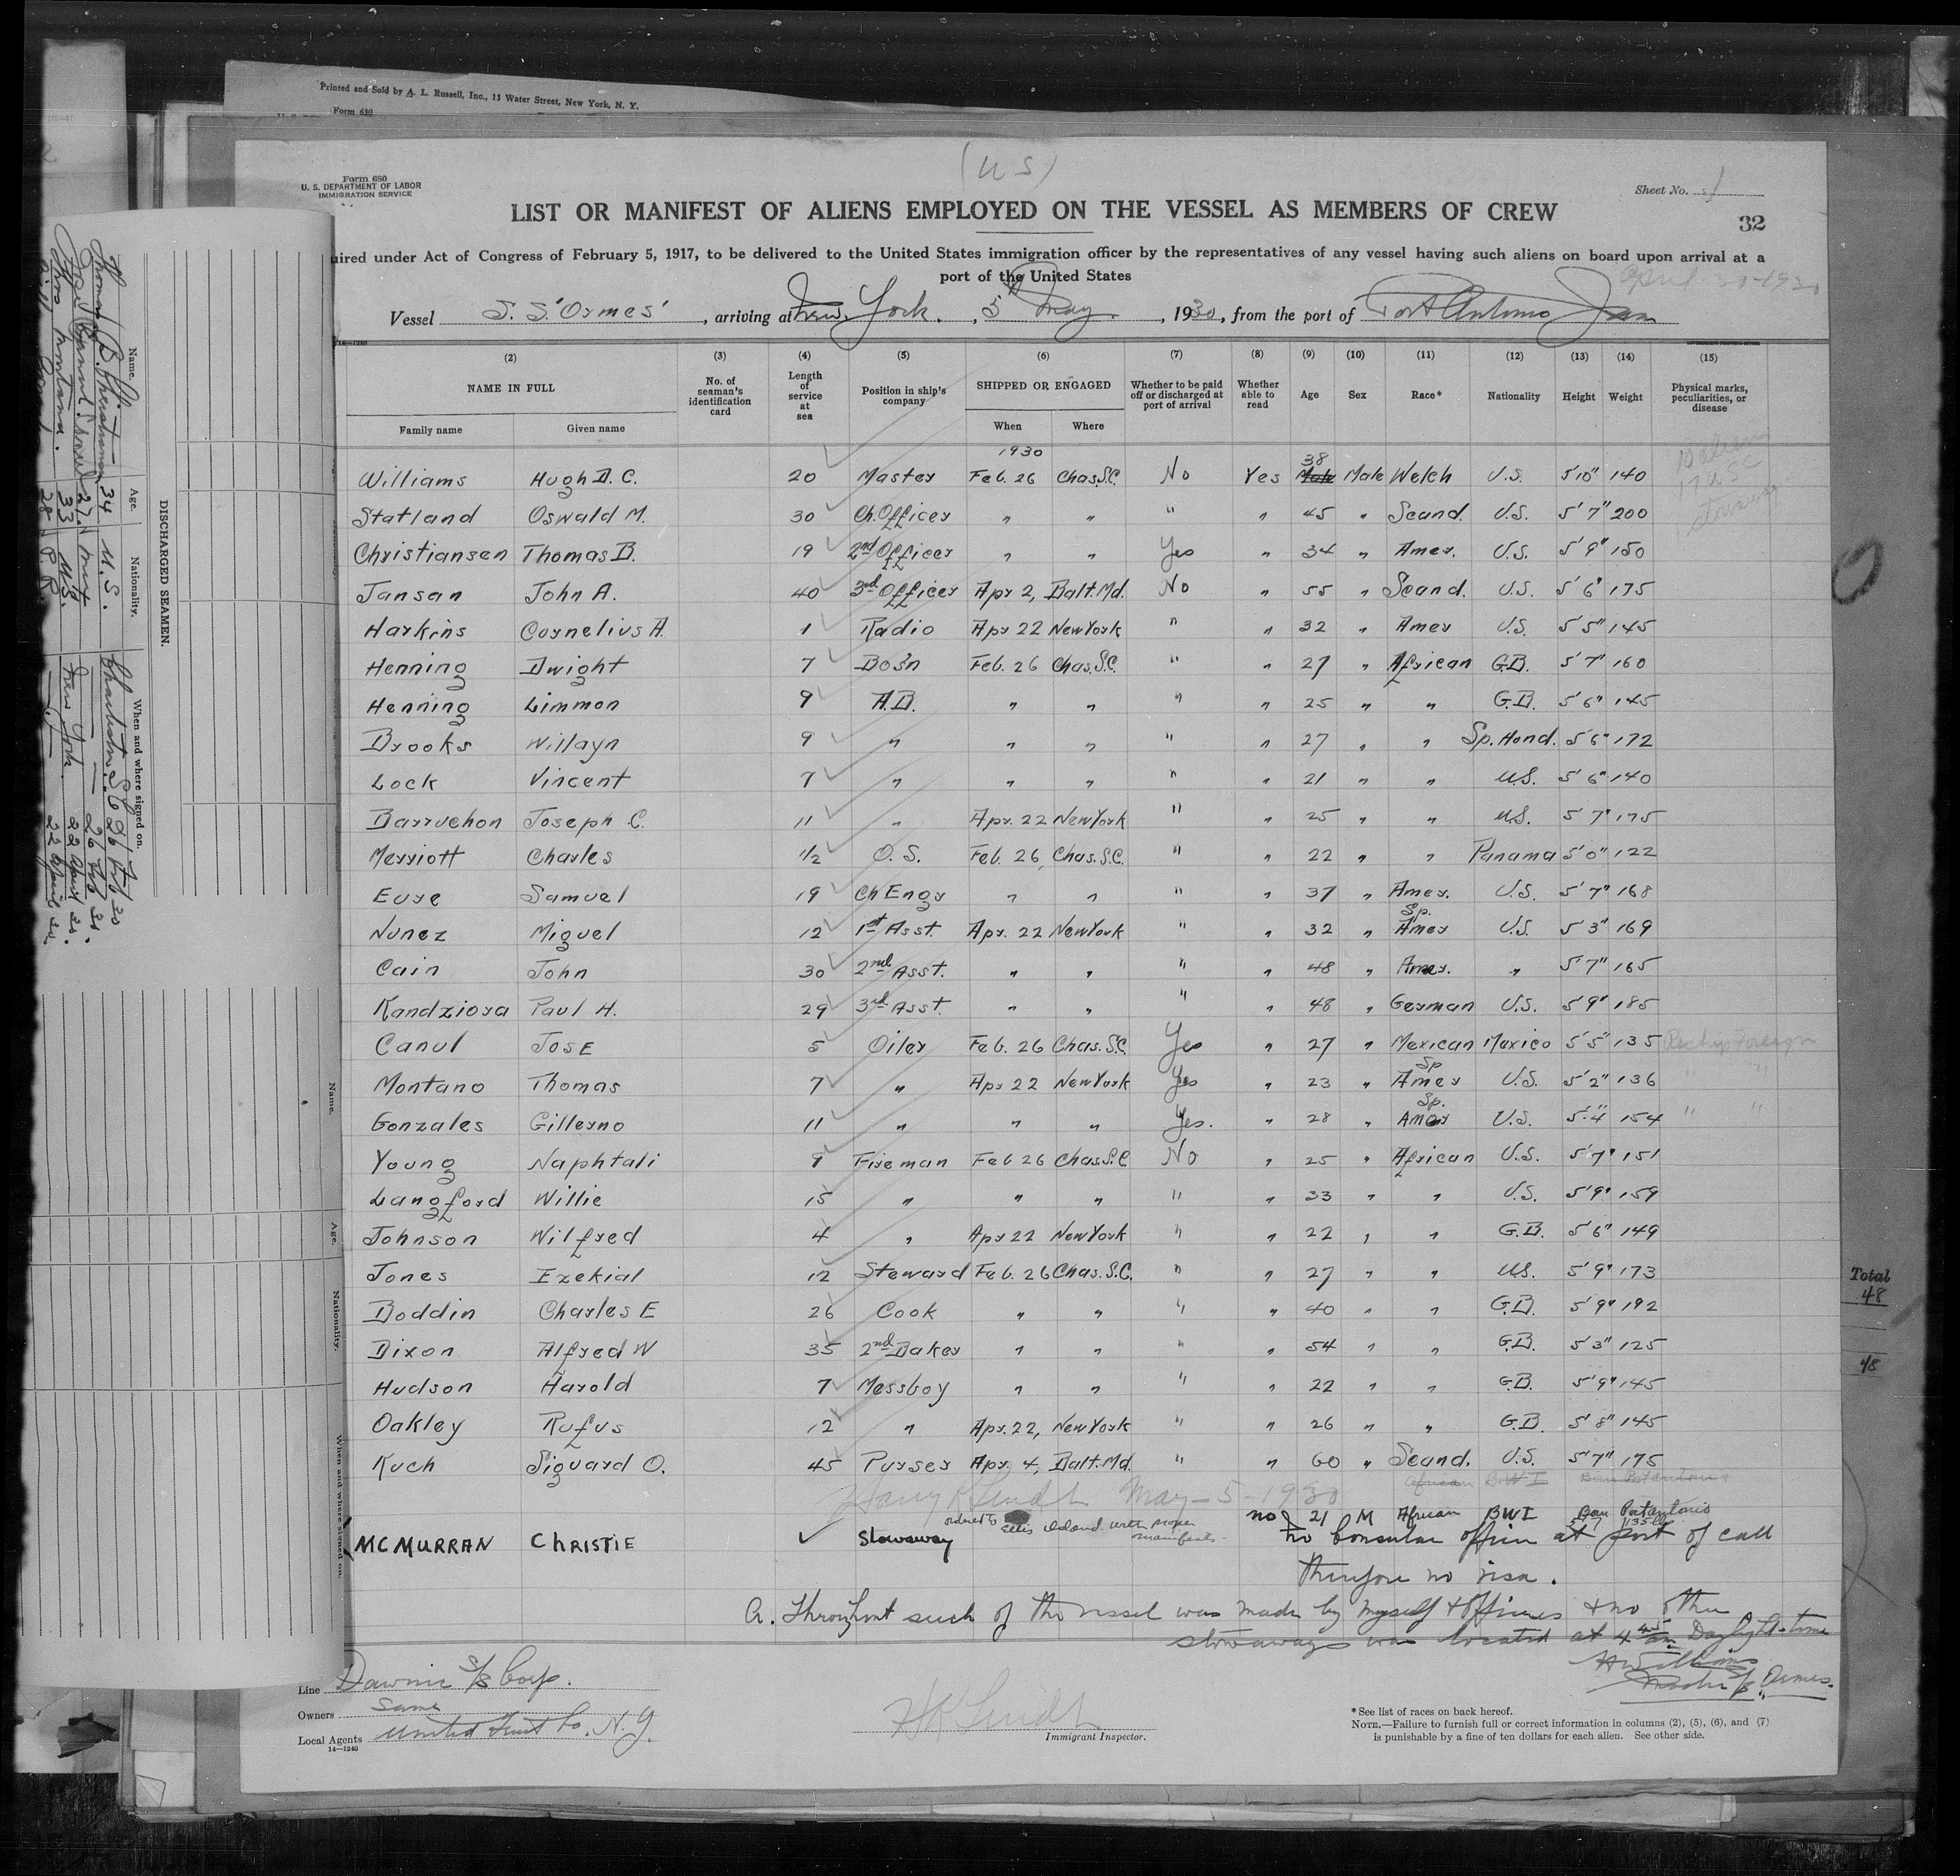 Printed and Sold by A. L. Russell, Inc., 13 Water Street, New York, N. Y.
Form 630
(U S)
Form 680
U. S. DEPARTMENT OF LABOR
IMMIGRATION SERVICE
Sheet No. 1
LIST OR MANIFEST OF ALIENS EMPLOYED ON THE VESSEL AS MEMBERS OF CREW
32
uired under Act of Congress of February 5, 1917, to be delivered to the United States immigration officer by the representatives of any vessel having such aliens on board upon arrival at a
port of the United States
April 30-1930
Vessel S.S. "Ormes", arriving at New York., 5th May, 1930, from the port of Port Antonio Jam
14-1240
(2) (3) (4) (5) (6) (7) (8) (9) (10) (11) (12) (13) (14) (15)
NAME IN FULL No. of seaman's identification card Length of service at sea Position in ship's company SHIPPED OR ENGAGED Whether to be paid off or discharged at port of arrival Whether able to read Age Sex Race* Nationality Height Weight Physical marks, peculiarities, or disease
Family name Given name When Where
1930
Williams Hugh D. C. 20 Master Feb. 26 Chas.S.C. No Yes 38 Male Welch U.S. 5'10" 140
Statland Oswald M. 30 Ch.Officer " " " " 45 " Scand. U.S. 5'7" 200
Christiansen Thomas B. 19 2nd Officer " " Yes " 34 " Amer. U.S. 5'9" 150
Jansan John A. 40 3rd Officer Apr 2, Balt.Md. No " 55 " Scand. U.S. 5'6" 175
Harkins Cornelius A. 1 Radio Apr 22 New York " " 32 " Amer U.S. 5'5" 145
Henning Dwight 7 Bo's'n Feb. 26 Chas.S.C. " " 27 " African G.B. 5'7" 160
Henning Limmon 9 A.B. " " " " 25 " " G.B. 5'6" 145
Brooks Willayn 9 " " " " " 27 " " Sp.Hond. 5'6" 172
Lock Vincent 7 " " " " " 21 " " U.S. 5'6" 140
Barruchon Joseph C. 11 " Apr. 22 New York " " 25 " " U.S. 5'7" 175
Merriott Charles 1/2 O.S. Feb. 26, Chas.S.C. " " 22 " " Panama 5'0" 122
Eure Samuel 19 Ch Engr " " " " 37 " Amer. U.S. 5'7" 168
Nunez Miguel 12 1st Asst. Apr. 22 New York " " 32 " Sp. Amer U.S. 5'3" 169
Cain John 30 2nd Asst. " " " " 48 " Amer. " 5'7" 165
Kandziora Paul H. 29 3rd Asst. " " " " 48 " German U.S. 5'9" 185
Canul Jose 5 Oiler Feb. 26 Chas.S.C. Yes " 27 " Mexican Mexico 5'5" 135 Reship Foreign
Montano Thomas 7 " Apr 22 New York Yes " 23 " Sp Amer U.S. 5'2" 136 " "
Gonzales Gillerno 11 " " " Yes. " 28 " Sp. Amer U.S. 5'4" 154 " "
Young Naphtali 9 Fireman Feb 26 Chas.S.C. No " 25 " African U.S. 5'7" 151
Langford Willie 15 " " " " " 33 " " U.S. 5'9" 159
Johnson Wilfred 4 " Apr 22 New York " " 22 " " G.B. 5'6" 149
Jones Ezekial 12 Steward Feb. 26 Chas.S.C. " " 27 " " U.S. 5'9" 173
Boddin Charles E 26 Cook " " " " 40 " " G.B. 5'9" 192
Dixon Alfred W 35 2nd Baker " " " " 54 " " G.B. 5'3" 125
Hudson Harold 7 Messboy " " " " 22 " " G.B. 5'9" 145
Oakley Rufus 12 " Apr. 22, New York " " 26 " " G.B. 5'8" 145
Kuch Siguard O. 45 Purser Apr. 4, Balt.Md. " " 60 " Scand. U.S. 5'7" 175
African B.W.I
Harry R Lindt May-5-1930
ordered to Ellis Island with proper manifest.
no 21 M African BWI Port Antonio 135 lb
MCMURRAN CHRISTIE Stowaway no Consular officer at port of call
therefore no visa.
A. Throughout such of the vessel was made by myself & officers & no other
stowaways was located at 4 45 am Daylight-time
HWilliams
Master S/S "Ormes.
Line Dawnic S/S Corp.
Owners Same
Local Agents United Fruit Co. N.Y.
14-1240
H R Lindt
Immigrant Inspector.
* See list of races on back hereof.
NOTE.—Failure to furnish full or correct information in columns (2), (5), (6), and (7)
is punishable by a fine of ten dollars for each alien. See other side.
Total
48
48
DISCHARGED SEAMEN.
Name. Age. Nationality. When and where signed on.
Thomas B. Christiansen 34 U.S. Charleston S.C. 26 Feb 30
27 26 Feb 30.
Thos Montana. 33 U.S. New York 22 April 30.
28 P.R. 22 April 30.
Name. Age. Nationality. When and where signed on.